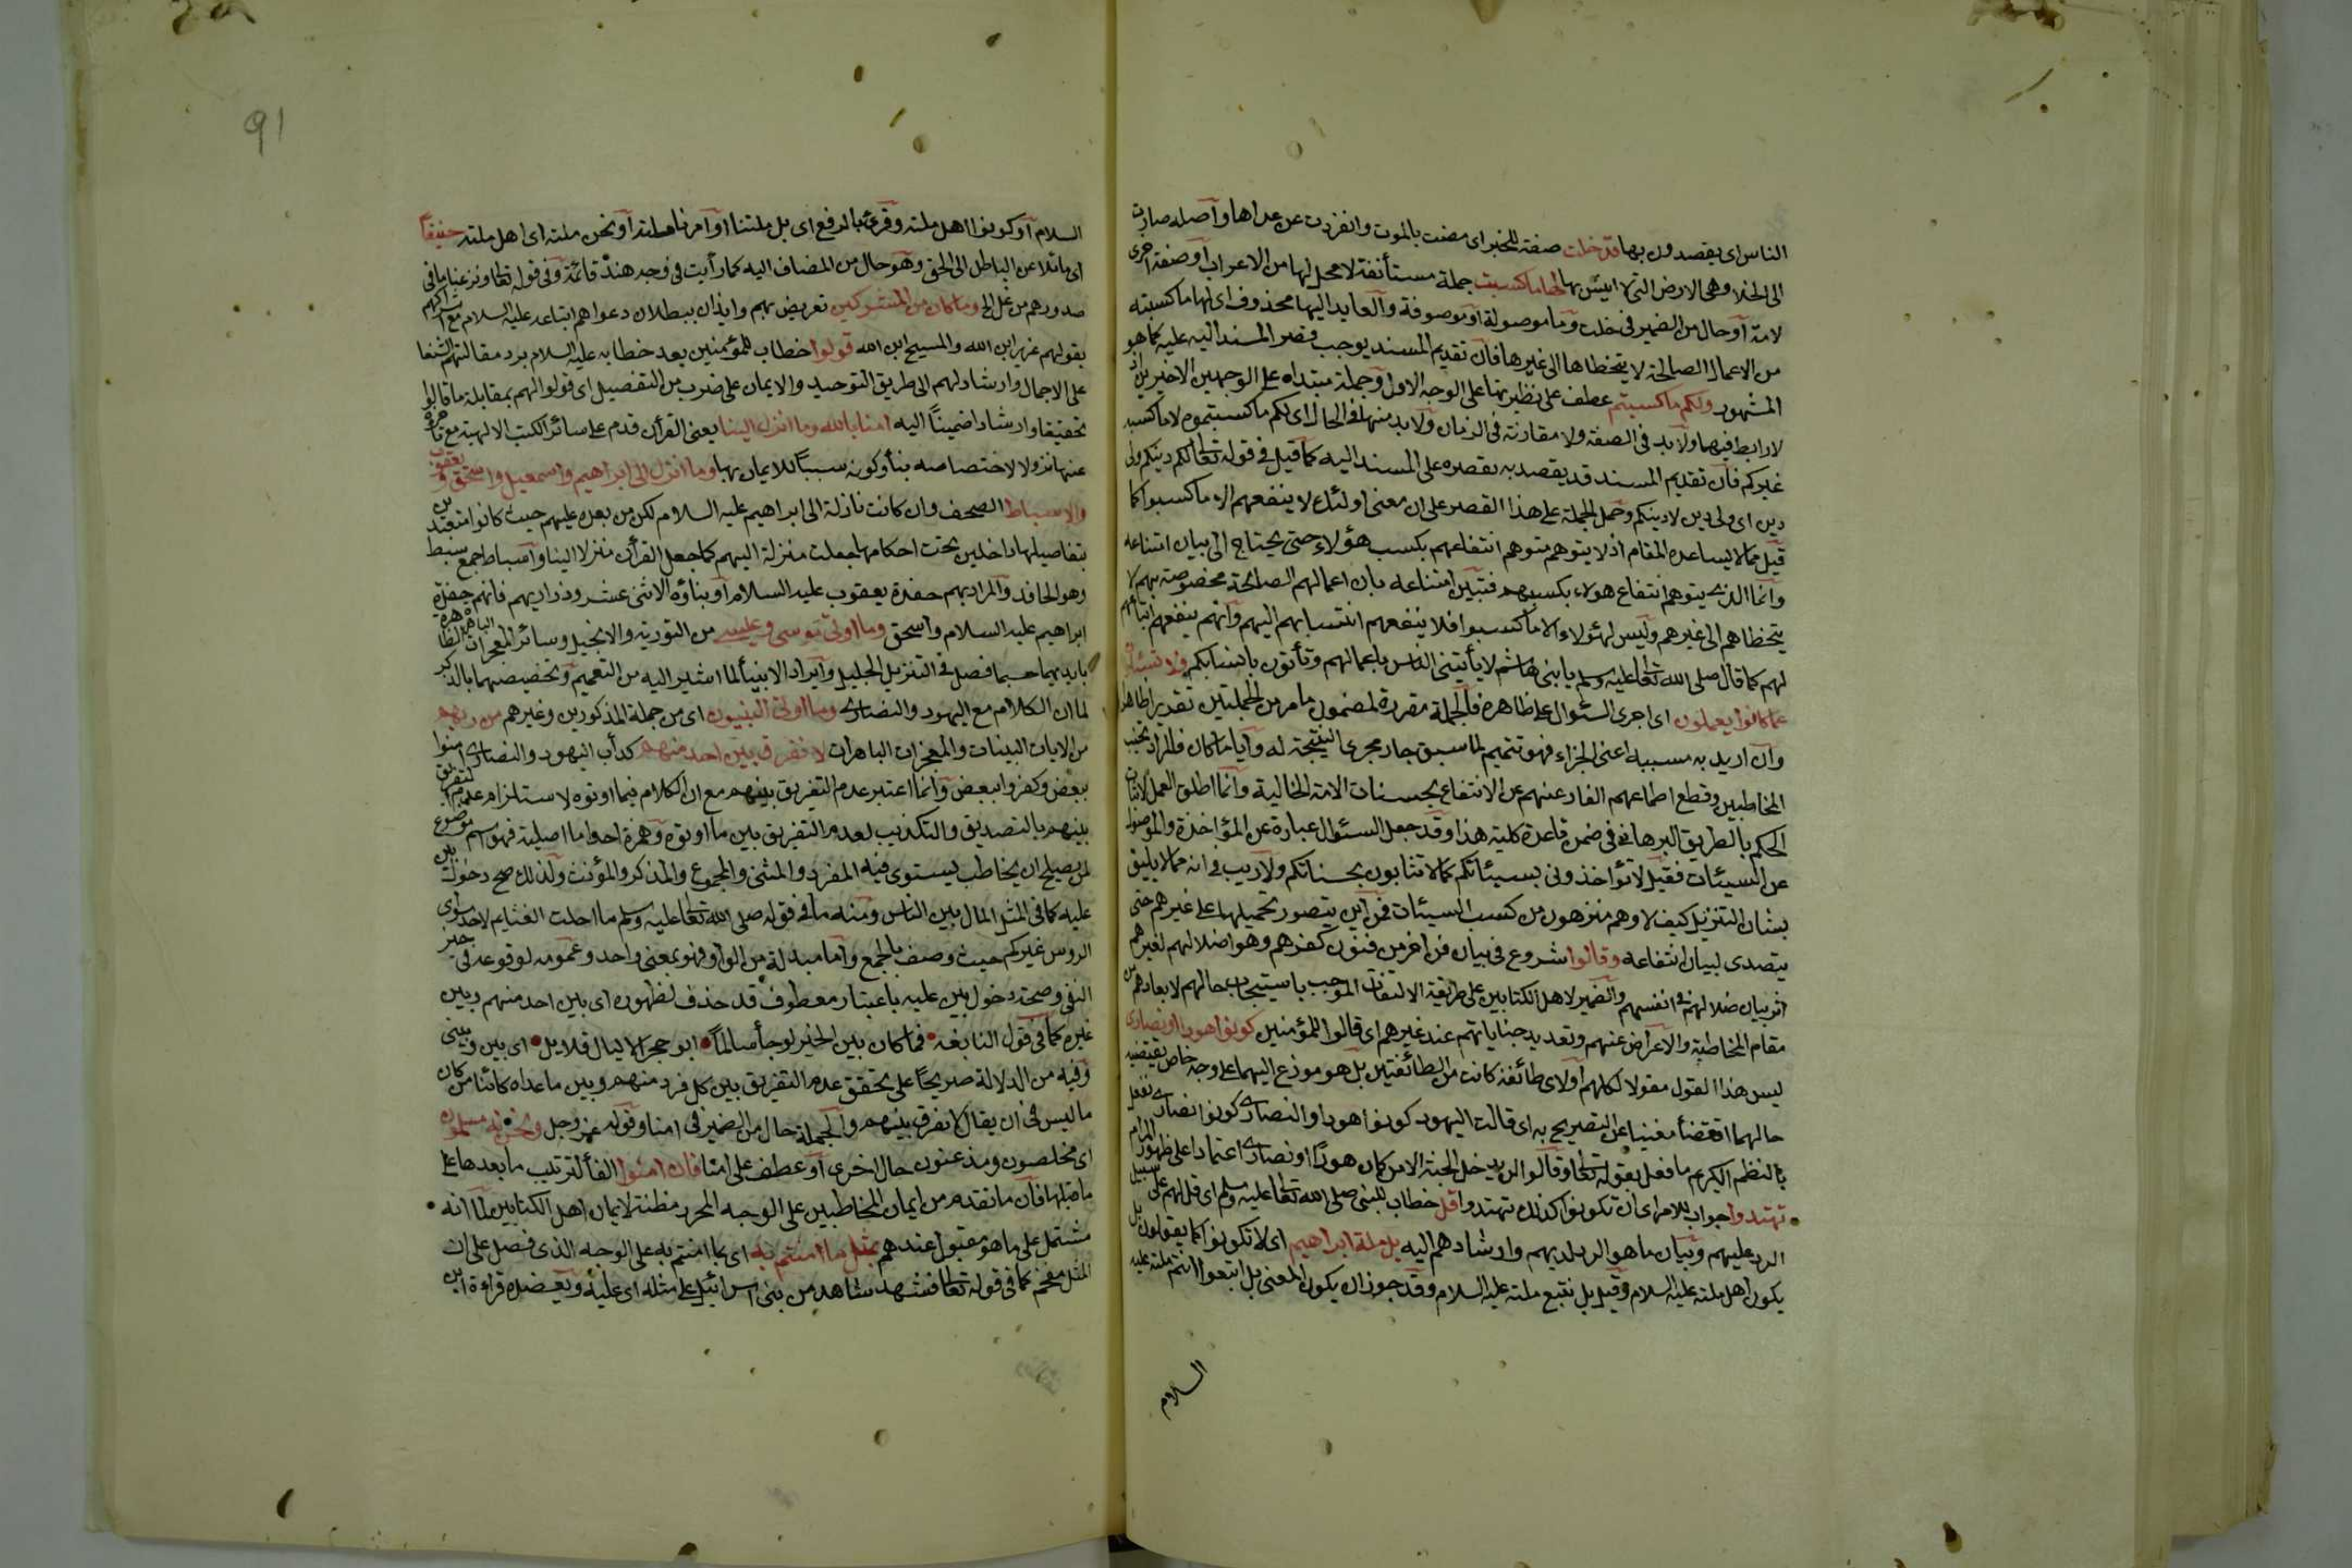 الناس اى يقصدون بها قد خلت صفة للخبر اى مضت بالموت وانفردت عن عداها وأصله صارت
الى الخلا وهى الارض التى لا انيس بها لها ما كسبت جملة مستأنفة لا محل لها من الاعراب أو صفة اخرى
لامة أو حال من الضمير فى خلت وما موصولة أو موصوفة والعايد اليها محذوف اى لها ما كسبته
من الاعمال الصالحة لا يتخطاها الى غيرها فان تقديم المسند يوجب قصر المسند اليه عليه كما هو
المشهور ولكم ما كسبتم عطف على نظيرتها على الوجه الاول وجملة مبتداه على الوجهين الاخيرين اذ
لا رابط فيها ولا بد فى الصفة ولا مقارنة فى الزمان ولا بد منها فى الحال اى لكم ما كسبتموه لا ما كسبه
غيركم فان تقديم المسند قد يقصد به بقصره على المسند اليه كما قيل فى قوله تعالى لكم دينكم ولى
دين اى ولى دين لا دينكم وحمل الجملة على هذا القصر على ان معنى اولئك لا ينفعهم الا ما كسبوا كما
قيل مما لا يساعده المقام اذ لا يتوهم متوهم انتفاعهم بكسب هؤلاء حتى يحتاج الى بيان امتناعه
وانما الذى يتوهم انتفاع هولاء بكسبهم فتبين امتناعه بان اعمالهم الصالحة مخصوصة بهم لا
يتخطاهم الى غيرهم وليس لهؤلاء الا ما كسبوا فلا ينفعهم انتسابهم اليهم وانهم ينفعهم اتباعهم
لهم كما قال صلى الله تعالى عليه وسلم يا بنى هاشم لا يأتينى الناس باعمالهم وتأتون بانسابكم ولا تسئلون
عما كانوا يعملون اى اجرى السئوال على ظاهره فالجملة مقررة لمضمون ما مر من الجملتين تقديرا ظاهرا
وان اريد به مسببه اعنى الجزاء فهو تتميم لما سبق جار مجرى النتيجة له وأيا ما كان فالمراد تخييب
المخاطبين وقطع اطماعهم الفارغة عنهم عن الانتفاع بحسنات الامة الخالية وانما اطلق العمل لاثبات
الحكم بالطريق البرهانى فى ضمن قاعدة كلية هذا وقد جعل السئوال عبارة عن المؤاخذة والموصول
عن السيئات فقيل لا تؤاخذونى بسيئاتكم كما لا تثابون بحسناتكم ولا ريب فى انه مما لا يليق
بشان التنزيل كيف لا وهم منزهون من كسب السيئات فمن أين يتصور تحميلها على غيرهم حتى
يتصدى لبيان انتفاعه وقالوا شروع فى بيان فن اخر من فنون كفرهم وهو اضلالهم لغيرهم
اثر بيان ضلالهم فى انفسهم والضمير لاهل الكتابين على طريقة الالتفات الموجب باستيجاب حالهم لابعادهم من
مقام المخاطبة والاعراض عنهم وتعديد جناياتهم عند غيرهم اى قالوا للمؤمنين كونوا هودا او نصارى
ليس هذا القول مقولا لكلهم او لاى طائفة كانت من الطائفتين بل هو موزع اليهما على وجه خاص يقتضيه
حالهما اقتضأ مغنيا عن التصريح به اى قالت اليهود كونوا هودا والنصارى كونوا نصارى ففعل
بالنظم الكريم ما فعل بقوله تعالى وقالوا لن يدخل الجنة الا من كان هودًا او نصارى اعتمادا على ظهور المرام
تهتدوا جواب للامر اى ان تكونوا كذلك تهتدوا قل خطاب للنبى صلى الله تعالى عليه وسلم اى قل لهم على سبيل
الرد عليهم وبيان ما هو الرد لديهم وارشادهم اليه بل ملة ابراهيم اى لا تكونوا كما يقولون بل
يكون اهل ملته عليه السلام وقيل بل نتبع ملته عليه السلام وقد جوز ان يكون المعنى بل اتبعوا انتم ملته عليه
السلام
91
السلام أو كونوا اهل ملته وقرئ بالرفع اى بل ملتنا او أمرنا ملته أو نحن ملته اى اهل ملته حنيفاً
اى مائلا عن الباطل الى الحق وهو حال من المضاف اليه كما رأيت فى وجه هند قائمة وفى قوله تعالى ونزعنا ما فى
صدورهم من غل الخ وما كان من المشركين تعريض بهم وايذان ببطلان دعواهم اتباعه عليه السلام مع اشراكهم
بقولهم عزير ابن الله والمسيح ابن الله قولوا خطاب للمؤمنين بعد خطابه عليه السلام برد مقالتهم الشنعا
على الاجمال وارشاد لهم الى طريق التوحيد والايمان على ضرب من التفصيل اى قولوا لهم بمقابلة ما قالوا
تحقيقا وارشادا ضمينًا اليه امنا بالله وما انزل الينا يعنى القرأن قدم على سائر الكتب الالهية مع تأخره
عنها نزولا لاختصاصه بنا وكونه سببًا للايمان بها وما انزل الى ابراهيم واسمعيل واسحق ويعقوب
والاسباط الصحف وان كانت نازلة الى ابراهيم عليه السلام لكن من بعده عليهم حيث كانوا متعبدين
بتفاصيلها داخلين تحت احكامها جعلت منزلة اليهم كما جعل القرأن منزلا الينا واسباط جمع سبط
وهو الحافد والمراد بهم حفدة يعقوب عليه السلام أو بناؤه الاثنى عشر وذراريهم فانهم حفدة
ابراهيم عليه السلام واسحق وما اوتى موسى وعيسى من التورية والانجيل وسائر المعجزات الباهرة الظاهرة
بايديهما حسبما فصل فى التنزيل الجليل وايراد الايتأ لما اشير اليه من التعميم وتخصيصهما بالذكر
لما ان الكلام مع اليهود والنصارى وما اوتى النبيون اى من جملة المذكورين وغيرهم من ربهم
من الايات البينات والمعجزات الباهرات لا نفرق بين احد منهم كدأب اليهود والنصارى امنوا
ببعض وكفروا ببعض وانما اعتبر عدم التفريق بينهم مع ان الكلام فيما اوتوه لاستلزام عدم التفريق
بينهم بالتصديق والتكذيب لعدم التفريق بين ما اوتوه وهمزة احد اما اصلية فهو اسم موضوع
لمن يصلح ان يخاطب يستوى فيه المفرد والمثنى والمجموع والمذكر والمؤنث ولذلك صح دخول بين
عليه كما فى المثل المال بين الناس ومنه ما فى قوله صلى الله تعالى عليه وسلم ما احلت الغنايم لاحد سوى
الروس غيركم حيث وصف بالجمع واما مبدلة من الواو فهو بمعنى واحد وعمومه لوقوعه فى حيز
النفى وصحة دخول بين عليه باعتبار معطوف قد حذف لظهوره اى بين احد منهم وبين
غيره كما فى قول النابغة فما كان بين الخير لو جأ سالماً ابو حجر الا ليال قلايل اى بين وبينى
وفيه من الدلالة صريحًا على تحقق عدم التفريق بين كل فرد منهم وبين ما عداه كائنا من كان
ما ليس فى ان يقال لا نفرق بينهم والجملة حال من الضمير فى امنا وقوله عز وجل ونحن له مسلمون
اى مخلصون ومذعنون حال اخرى أو عطف على امنا فان امنوا الفأ لترتيب ما بعدها على
ما قبلها فان ما تقدم من ايمان المخاطبين على الوجه المحرر مظنة لايمان اهل الكتابين لما انه
مشتمل على ما هو مقبول عندهم بمثل ما امنتم به اى بما امنتم به على الوجه الذى فصل على ان
المثل مقحم كما فى قوله تعالى فشهد شاهد من بنى اسرائيل على مثله اى عليه ويعضده قراءة ابن